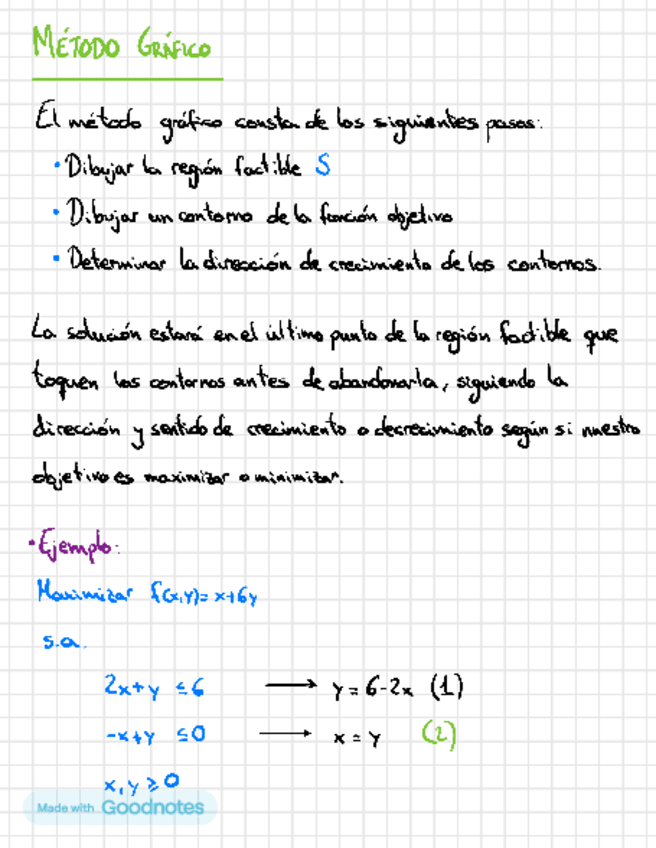 MÉTODO GRÁFICO
El método gráfico consta de los siguientes pasos:
• Dibujar la región factible S
• Dibujar un contorno de la función objetivo
• Determinar la dirección de crecimiento de los contornos.
La solución estará en el último punto de la región factible que
toquen los contornos antes de abandonarla, siguiendo la
dirección y sentido de crecimiento o decrecimiento según si nuestro
objetivo es maximizar o minimizar.
• Ejemplo:
Maximizar f(x,y)= x+6y
s.a.
2x+y ≤6 → y=6-2x (1)
-x+y ≤0 → x=y (2)
x,y ≥0
Made with Goodnotes